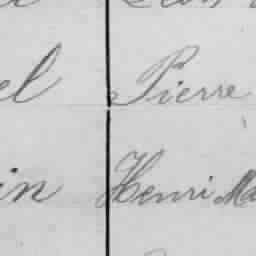 el Pierre
in Henri Ma